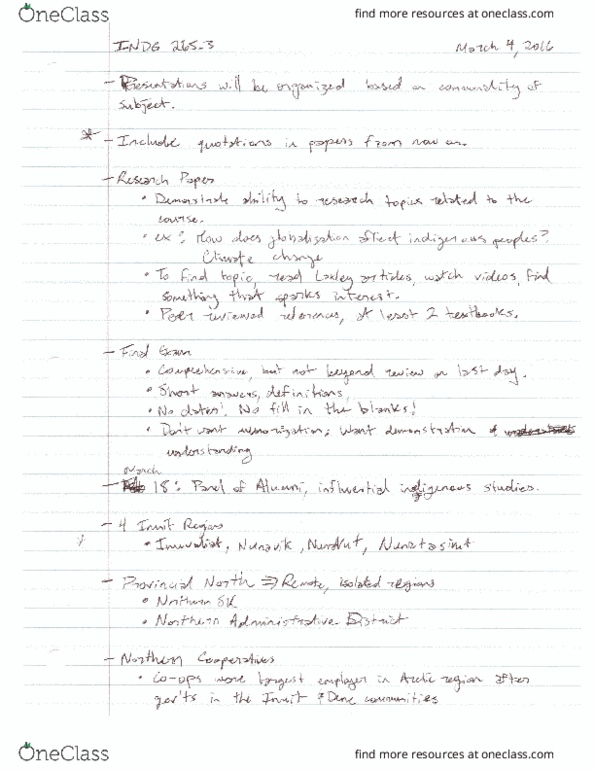 OneClass
find more resources at oneclass.com
INDG 265.3 March 4, 2016
- Presentations will be organized based on commonality of
subject.
* - Include quotations in papers from now on.
- Research Paper
• Demonstrate ability to research topics related to the
course.
• ex: How does globalization affect indigenous peoples?
Climate change
• To find topic, read articles, watch videos, find
something that sparks interest.
• Peer reviewed references, at least 2 textbooks.
- Final Exam
• Comprehensive, but not beyond review on last day.
• Short answers, definitions,
• No dates! No fill in the blanks!
• Don't want memorization; want demonstration of
understanding
March
- 18: Panel of Alumni, influential indigenous studies.
- 4 Inuit Regions
• Nunavik, Nunavut,
- Provincial North => Remote, isolated regions
• Northern SK
• Northern Administrative District
- Northern Cooperatives
• Co-ops were largest employer in Arctic region after
gov'ts in the Inuit & Dene communities
OneClass
find more resources at oneclass.com